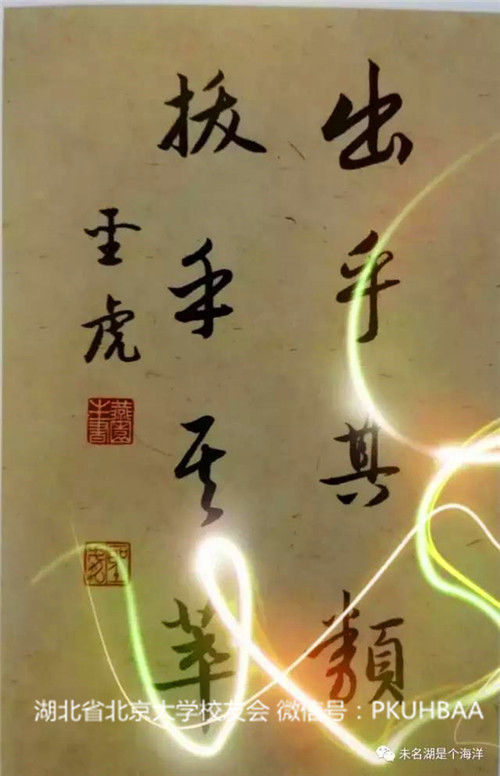 出乎其類
拔乎其萃
虎
燕園
湖北省北京大学校友会 微信号：PKUHBAA
未名湖是个海洋